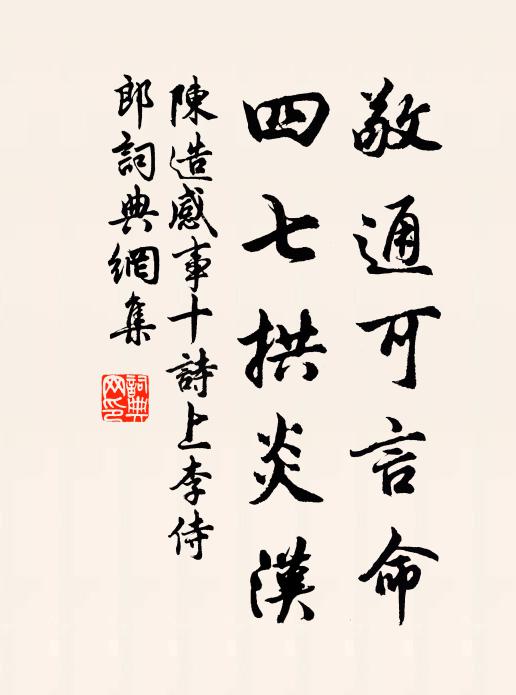 敬通可言命
四七拱炎漢
陳造感事十詩上李侍
郎詞典網集
詞典
网印